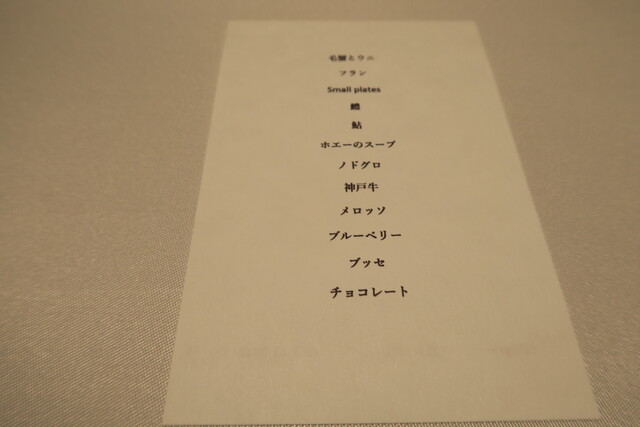 毛蟹とウニ
フラン
Small plates
鱧
鮎
ホエーのスープ
ノドグロ
神戸牛
メロッソ
ブルーベリー
ブッセ
チョコレート